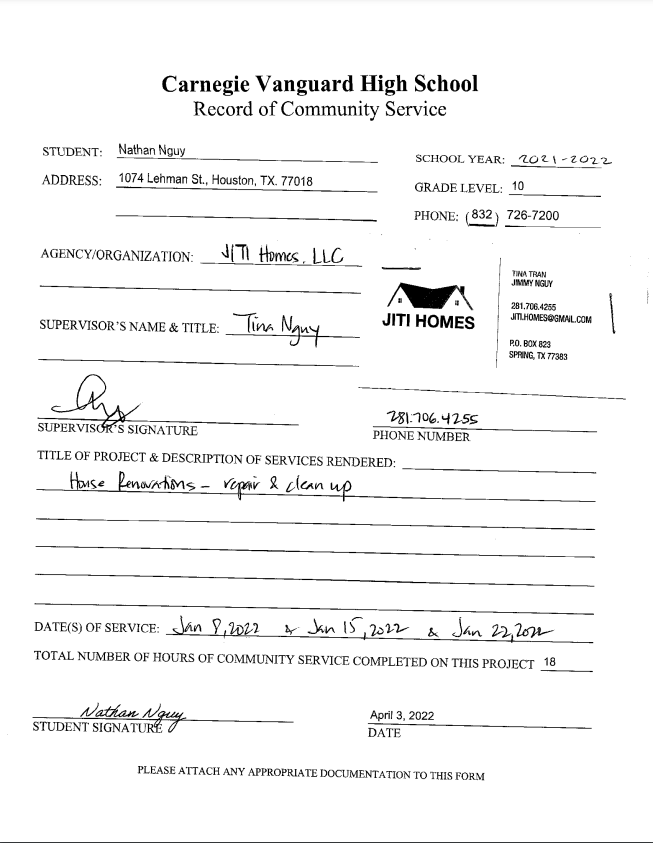 Carnegie Vanguard High School
Record of Community Service
STUDENT: Nathan Nguy
SCHOOL YEAR: 2021-2022
ADDRESS: 1074 Lehman St., Houston, TX. 77018
GRADE LEVEL: 10
PHONE: (832) 726-7200
AGENCY/ORGANIZATION: JITI Homes, LLC
JITI HOMES
TINA TRAN
JIMMY NGUY
281.706.4255
JITI.HOMES@GMAIL.COM
P.O. BOX 823
SPRING, TX 77383
SUPERVISOR'S NAME & TITLE: Tina Nguy
281.706.4255
SUPERVISOR'S SIGNATURE
PHONE NUMBER
TITLE OF PROJECT & DESCRIPTION OF SERVICES RENDERED:
House Renovations - repair & clean up
DATE(S) OF SERVICE: Jan 8, 2022 & Jan 15, 2022 & Jan 22, 2022
TOTAL NUMBER OF HOURS OF COMMUNITY SERVICE COMPLETED ON THIS PROJECT 18
Nathan Nguy
April 3, 2022
STUDENT SIGNATURE
DATE
PLEASE ATTACH ANY APPROPRIATE DOCUMENTATION TO THIS FORM